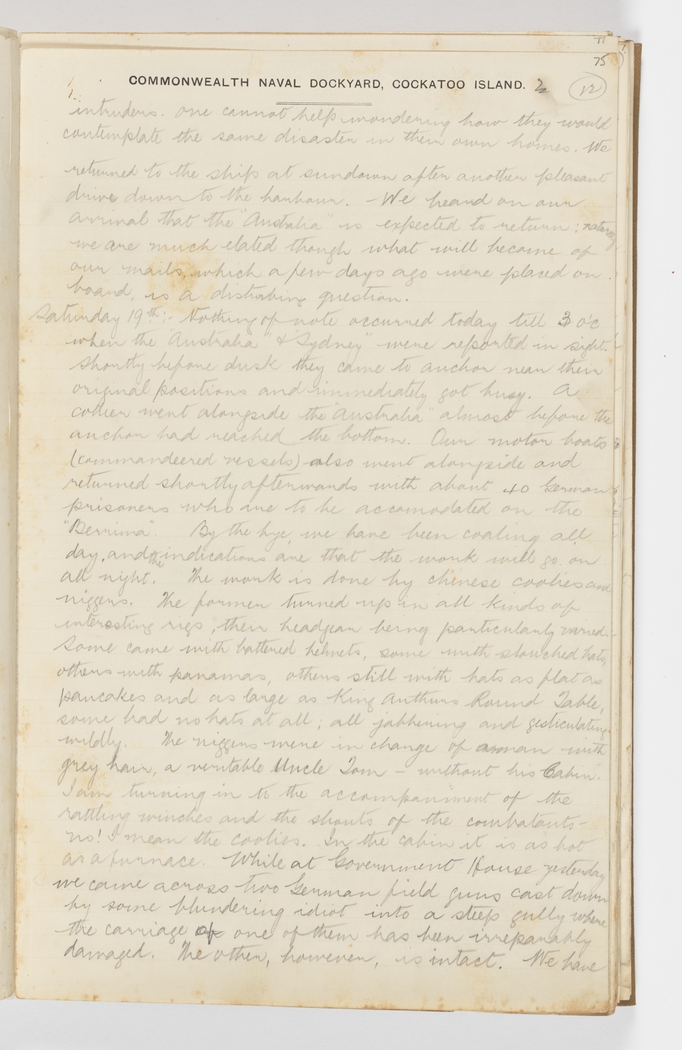 75
COMMONWEALTH NAVAL DOCKYARD, COCKATOO ISLAND. 2 12
intruders. One cannot help wondering how they would
contemplate the same disaster in their own homes. We
returned to the ship at sundown after another pleasant
drive down to the harbour. - We heard on our
arrival that the "Australia" is expected to return;
we are much elated though what will become of
our mails, which a few days ago were placed on
board, is a disturbing question.
Saturday 19th:- Nothing of note occurred today till 3 o'c
when the "Australia" & Sydney" were reported in sight.
Shortly before dusk they came to anchor near their
original positions and immediately got busy. A
collier went alongside the "Australia" almost before the
anchor had reached the bottom. Our motor boats
(commandeered vessels) also went alongside and
returned shortly afterwards with about 40 German
prisoners who are to be accomodated on the
"Berrima". By the bye, we have been coaling all
day, and the indications are that the work will go on
all night. The work is done by chinese coolies and
niggers. The former turned up in all kinds of
interesting rigs, their headgear being particularly varied.
Some came with battered helmets, some with slouched hats,
others with panamas, others still with hats as flat as
pancakes and as large as King Arthurs Round Table,
some had no hats at all; all jabbering and gesticulating
wildly. The niggers were in charge of a man with
grey hair, a veritable Uncle Tom - without his Cabin.
I am turning in to the accompaniment of the
rattling winches and the shouts of the combatants -
no! I mean the coolies. In the cabin it is as hot
as a furnace. While at Government House yesterday
we came across two German field guns cast down
by some blundering idiot into a steep gully where
the carriage of one of them has been irreparably
damaged. The other, however, is intact. We have